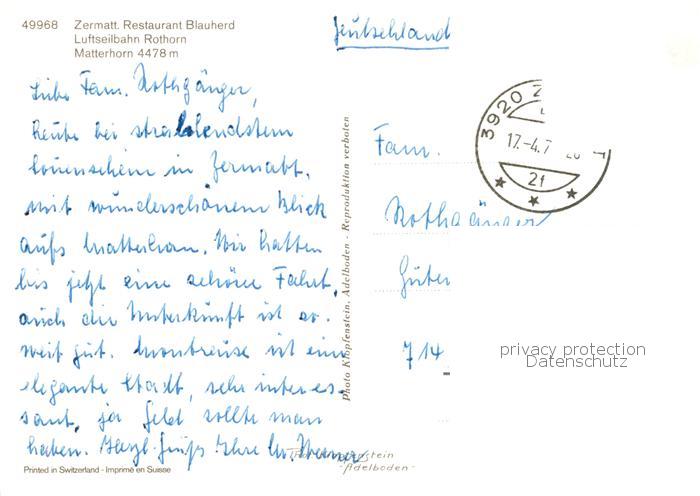 49968 Zermatt. Restaurant Blauherd
Luftseilbahn Rothorn
Matterhorn 4478 m
Deutschland
Liebe Fam. Rothgänger,
Heute bei strahlendstem
Sonnenschein in Zermatt,
mit wunderschönem Blick
aufs Matterhorn. Wir hatten
bis jetzt eine schöne Fahrt,
auch die Unterkünft ist so-
weit gut. Montreux ist eine
elegante Stadt, sehr interes-
sant, ja Geld sollte man
haben. Herzl. Grüße Ihre
Photo Klopfenstein, Adelboden - Reproduktion verboten
3920 Z
17.-4.7
2f
Fam.
Rothgänger
Güter
714
privacy protection
Datenschutz
Klopfenstein
- Adelboden -
Printed in Switzerland - Imprimé en Suisse